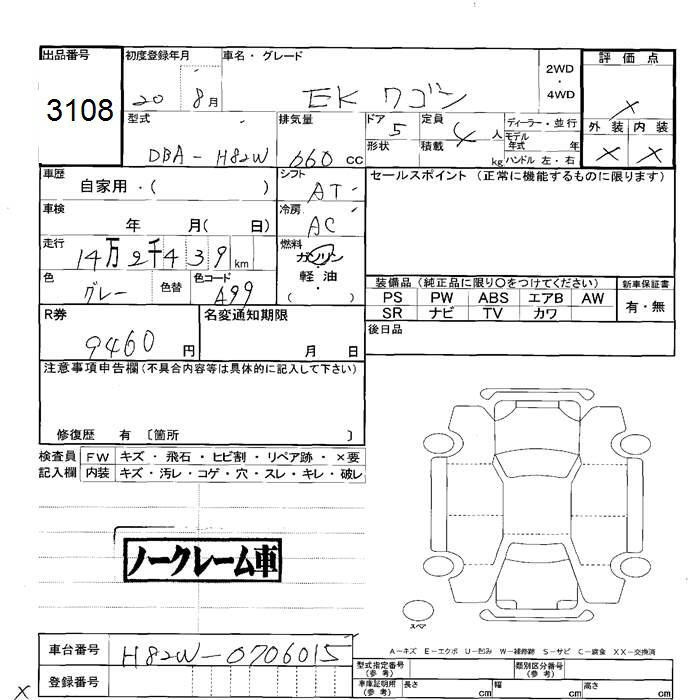 出品番号
3108
初度登録年月
20 8月
車名・グレード
EK ワゴン
2WD
・
4WD
評価点
×
外装 内装
× ×
型式
DBA-H82W
排気量
660 cc
ドア 5
形状
定員 4 人
積載 kg
ディーラー・並行
モデル
年式 年
ハンドル 左・右
車歴
自家用・( )
シフト
AT
セールスポイント (正常に機能するものに限ります)
車検
年 月( 日)
冷房
AC
走行
14万2千439km
燃料
ガソリン
・
軽油
( )
色
グレー
色替
色コード
A99
装備品 (純正品に限り○をつけてください)
新車保証書
PS PW ABS エアB AW
SR ナビ TV カワ
有・無
R券
9460 円
名変通知期限
月 日
後日品
注意事項申告欄 (不具合内容等は具体的に記入して下さい)
修復歴 有 〔箇所 〕
検査員
記入欄
FW キズ・飛石・ヒビ割・リペア跡・×要
内装 キズ・汚レ・コゲ・穴・スレ・キレ・破レ
ノークレーム車
スペア
A-キズ E-エクボ U-凹み W-補修跡 S-サビ C-腐食 XX-交換済
車台番号
H82W-0706015
登録番号
×
型式指定番号
(参考)
類別区分番号
(参考)
車庫証明用
(参考)
長さ cm 幅 cm 高さ cm